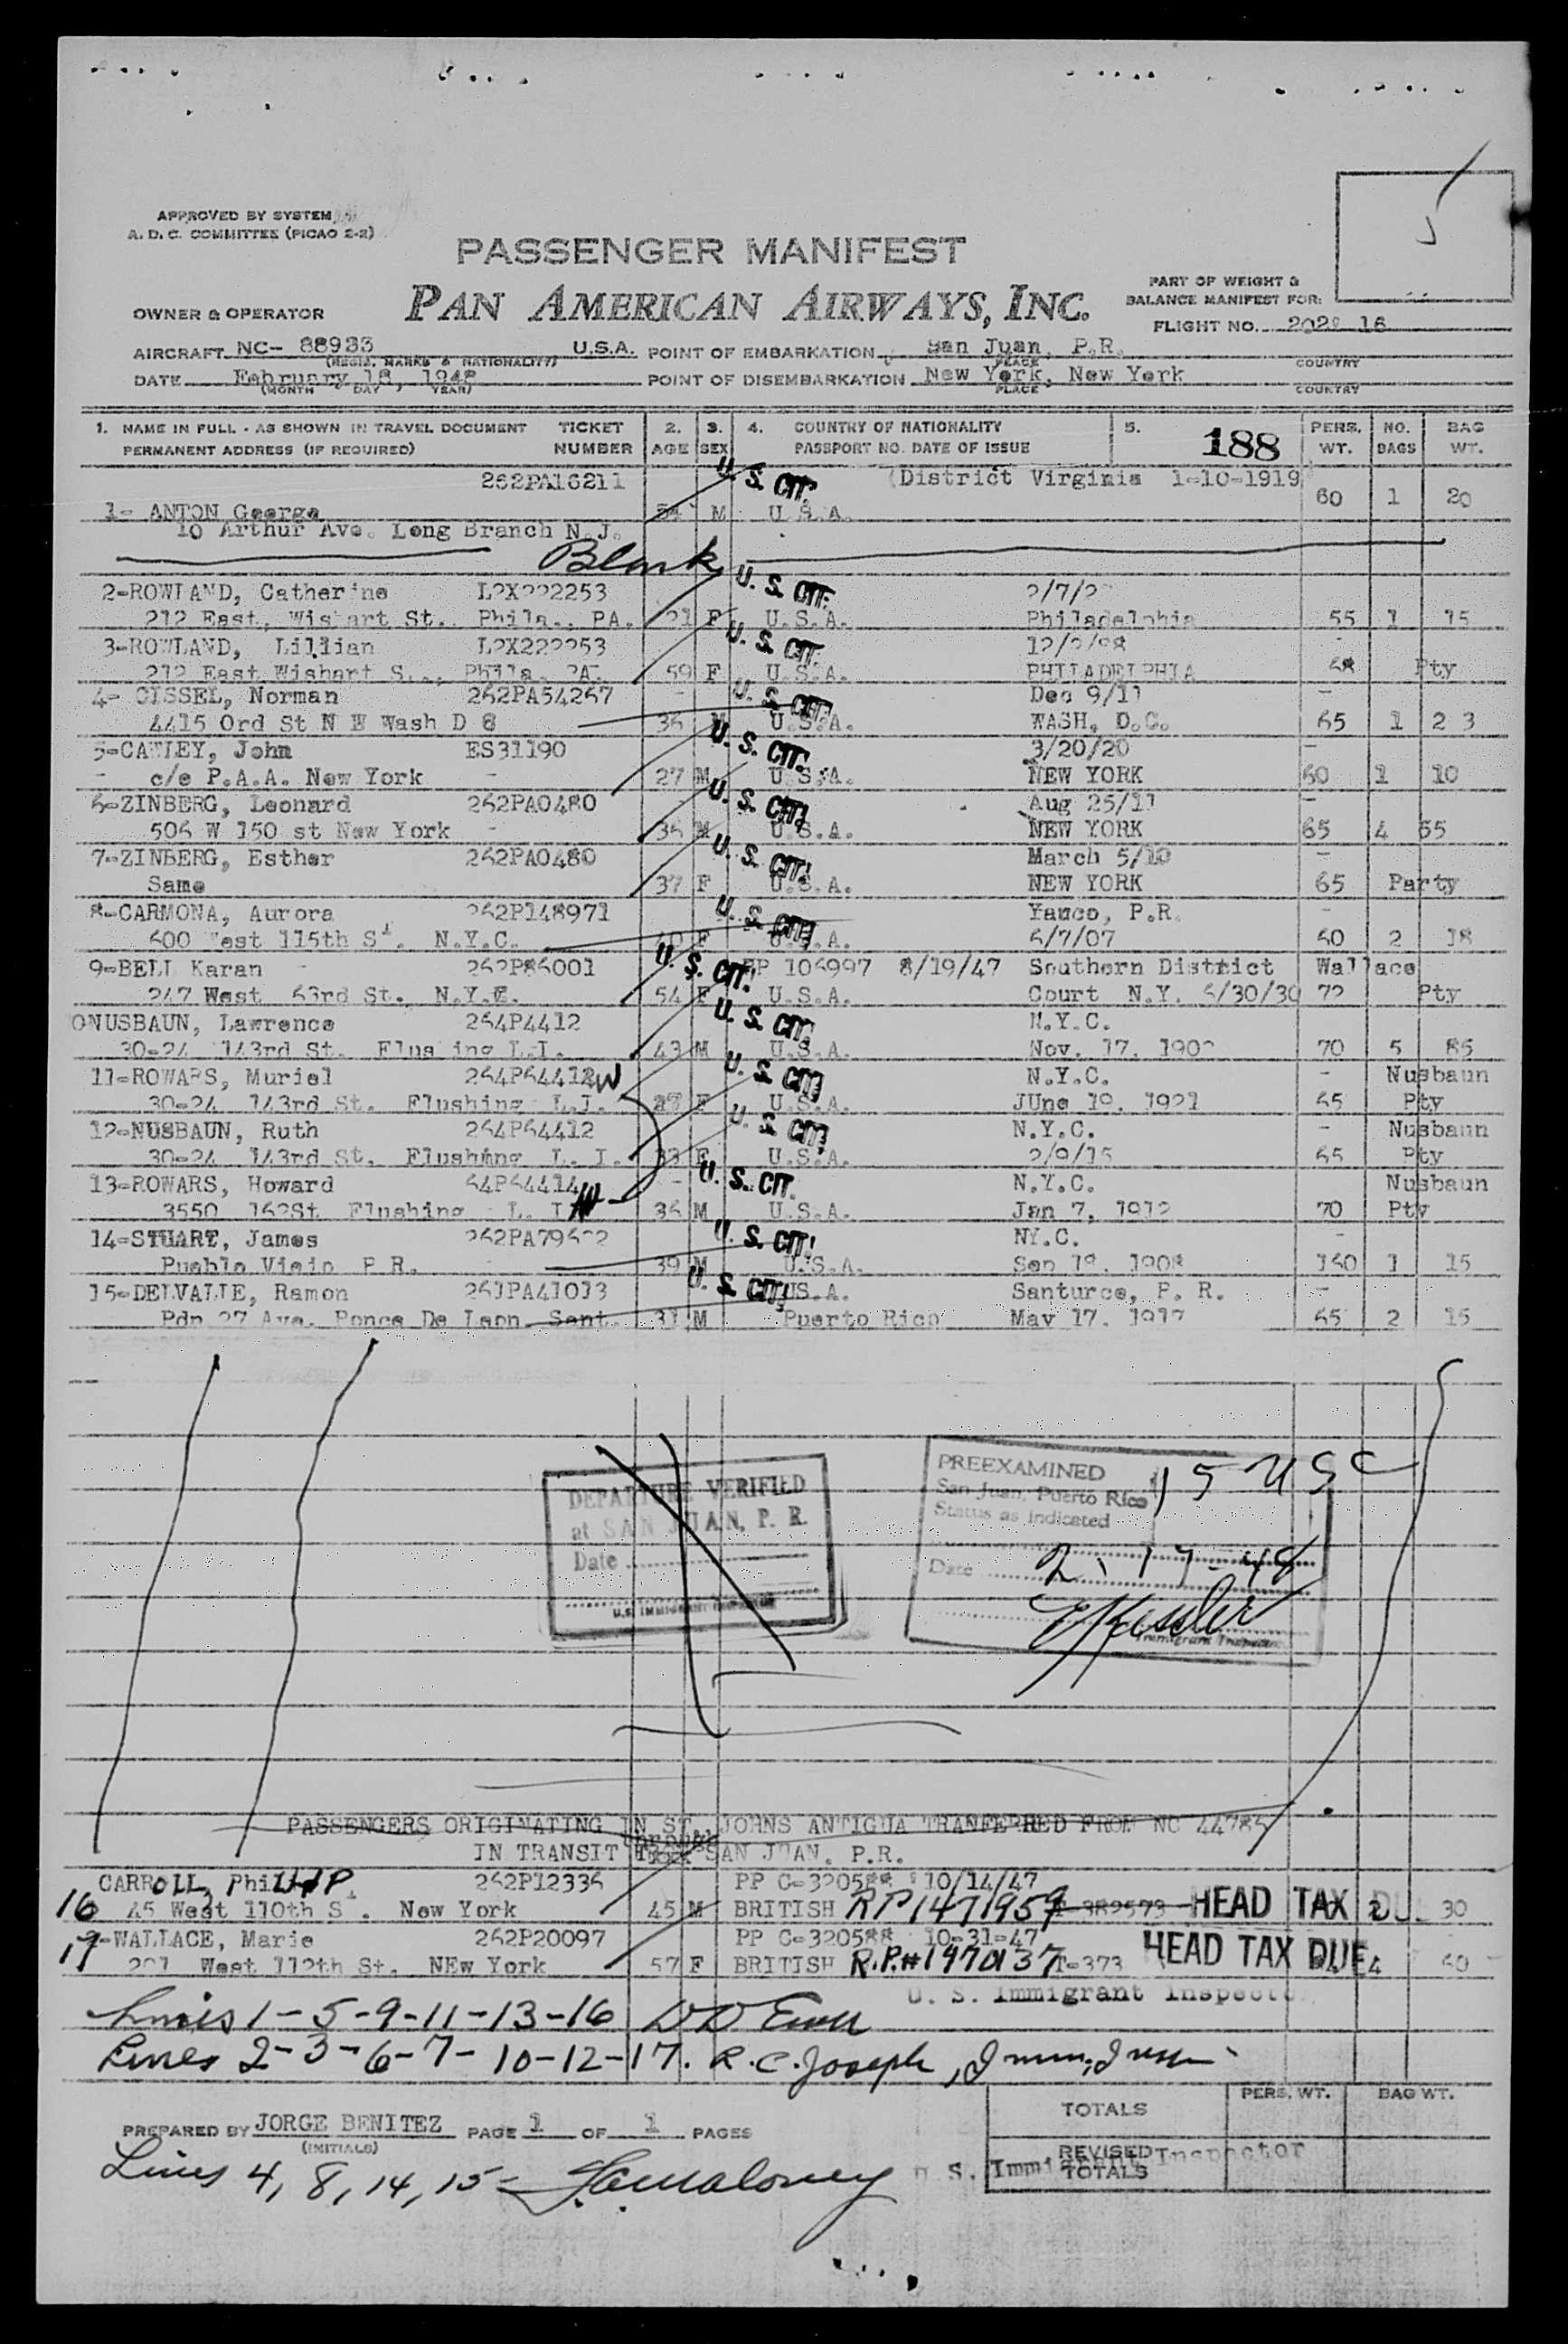 APPROVED BY SYSTEM
A. D. C. COMMITTEE (PICAO 2-2)
PASSENGER MANIFEST
PAN AMERICAN AIRWAYS, INC.
PART OF WEIGHT &
BALANCE MANIFEST FOR:
OWNER & OPERATOR
FLIGHT NO. 202
AIRCRAFT NC- 88933 U.S.A. POINT OF EMBARKATION San Juan, P.R.
(REGIS. MARKS & NATIONALITY) PLACE COUNTRY
DATE February 18, 1948 POINT OF DISEMBARKATION New York, New York
(MONTH DAY YEAR) PLACE COUNTRY
1. NAME IN FULL - AS SHOWN IN TRAVEL DOCUMENT TICKET 2. 3. 4. COUNTRY OF NATIONALITY 5. 188 PERS. NO. BAG
PERMANENT ADDRESS (IF REQUIRED) NUMBER AGE SEX PASSPORT NO. DATE OF ISSUE WT. BAGS WT.
262PA16211 U. S. CIT. (District Virginia 1-10-1919
1- ANTON George M U.S.A. 60 1 20
10 Arthur Ave. Long Branch N.J.
Blank
2-ROWLAND, Catherine U. S. CIT.
212 East, Wishart St. Phila., PA. 21 F U.S.A. Philadelphia 55 1 15
3-ROWLAND, Lillian U. S. CIT.
212 East Wishart S., Phila. PA. 59 F U.S.A. PHILADELPHIA 68 Pty
4- GISSEL, Norman 262PA54267 U. S. CIT. Dec 9/11
4415 Ord St N E Wash D 8 36 M U.S.A. WASH, D.C. 65 1 23
5-CAWLEY, John ES31190 U. S. CIT. 3/20/20
c/o P.A.A. New York 27 M U.S.A. NEW YORK 60 1 10
6-ZINBERG, Leonard 262PA0480 U. S. CIT. Aug 25/11
506 W 150 st New York 36 M U.S.A. NEW YORK 65 4 55
7-ZINBERG, Esther 262PA0480 U. S. CIT. March 5/10
Same 37 F U.S.A. NEW YORK 65 Party
8-CARMONA, Aurora 262P148971 U. S. CIT. Yauco, P.R.
600 West 115th St. N.Y.C. 40 F U.S.A. 6/7/07 60 2 18
9-BELL Karan 262P86001 U. S. CIT. PP 106997 8/19/47 Southern District Wallace
247 West 63rd St. N.Y.C. 54 F U.S.A. Court N.Y. 6/30/30 72 Pty
ONUSBAUN, Lawrence 264P4412 U. S. CIT. N.Y.C.
30-24 143rd St. Flushing L.I. 43 M U.S.A. Nov. 17, 70 5 85
11-ROWARS, Muriel 264P64412 W U. S. CIT. N.Y.C. Nusbaun
30-24 143rd St. Flushing L.I. 27 F U.S.A. JUne 19, 1921 65 Pty
12-NUSBAUN, Ruth 264P64412 U. S. CIT. N.Y.C. Nusbaun
30-24 143rd St. Flushing L. I. 33 F U.S.A. 2/9/15 65 Pty
13-ROWARS, Howard 64P64414 U. S. CIT. N.Y.C. Nusbaun
3550 162St Flushing L. I. W 36 M U.S.A. Jan 7, 1912 70 Pty
14-STUART, James U. S. CIT. NY.C.
Pueblo Viejo P.R. 39 M U.S.A. Sep 18, 1908 160 1 15
15-DELVALLE, Ramon 261PA41013 U. S. CIT. US.A. Santurce, P. R.
Pdn 27 Ave. Ponce De Leon Sant. 31 M Puerto Rico May 17, 1917 65 2 15
DEPARTURE VERIFIED
at SAN JUAN, P. R.
Date
U.S. IMMIGRANT INSPECTOR
PREEXAMINED
San Juan, Puerto Rico 15 USC
Status as indicated
Date 2-17-48
EKessler
Immigrant Inspector
PASSENGERS ORIGINATING IN ST. JOHNS ANTIGUA TRANFERRED FROM NC 44785
IN TRANSIT through SAN JUAN, P.R.
CARROLL, PhilLIP 262P12336 PP C-320588 10/14/47
16 45 West 110th St. New York 45 M BRITISH RP1471959 HEAD TAX DUE 2 30
17 WALLACE, Marie 262P20097 PP C-320588 10-31-47
201 West 112th St. NEw York 57 F BRITISH R.P.#1470137 T-373 HEAD TAX DUE 4 60
U. S. Immigrant Inspector
Lines 1-5-9-11-13-16
Lines 2-3-6-7-10-12-17. R. C. Joseph, Imm. Insp.
PREPARED BY JORGE BENITEZ PAGE 1 OF 1 PAGES
(INITIALS)
PERS. WT. BAG WT.
TOTALS
REVISED
TOTALS
U. S. Immigrant Inspector
Lines 4, 8, 14, 15-